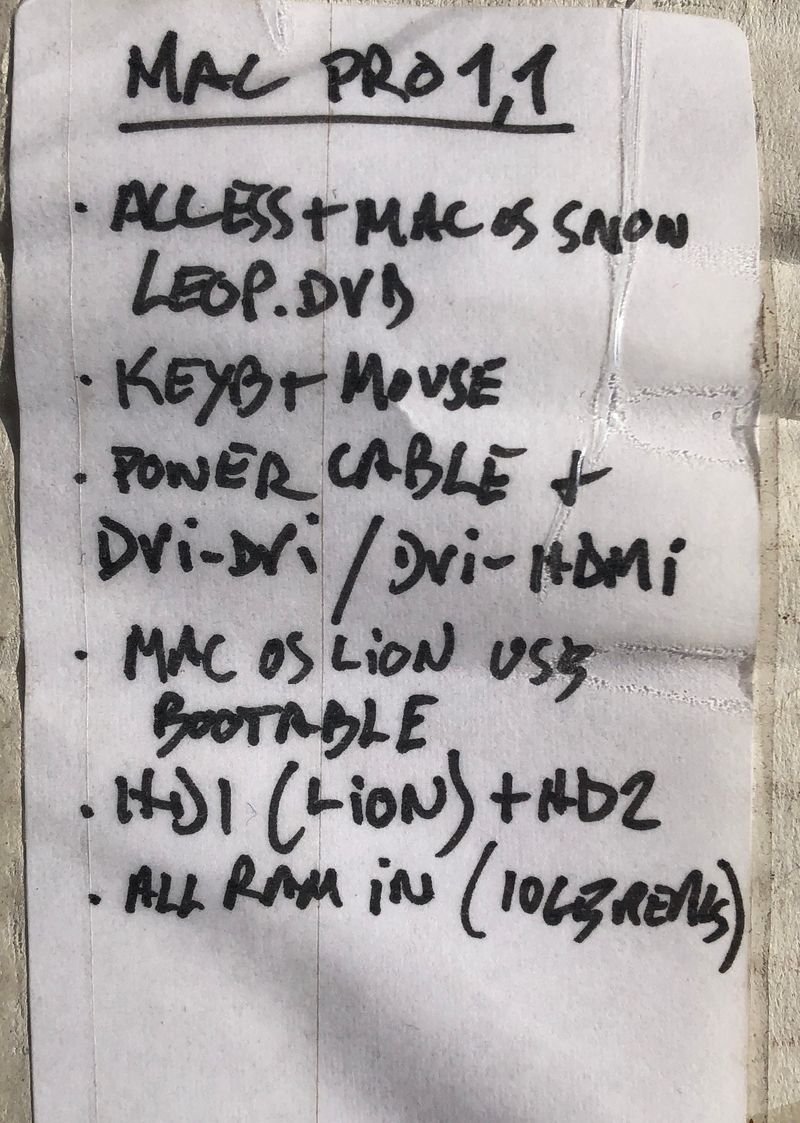 MAC PRO 1,1
· ACCESS + MAC OS SNOW
LEOP. DVD
· KEYB + MOUSE
· POWER CABLE +
DVi-DVi / DVi-HDMi
· MAC OS LiON USB
BOOTABLE
· HD1 (LiON) + HD2
· ALL RAM iN (10GB